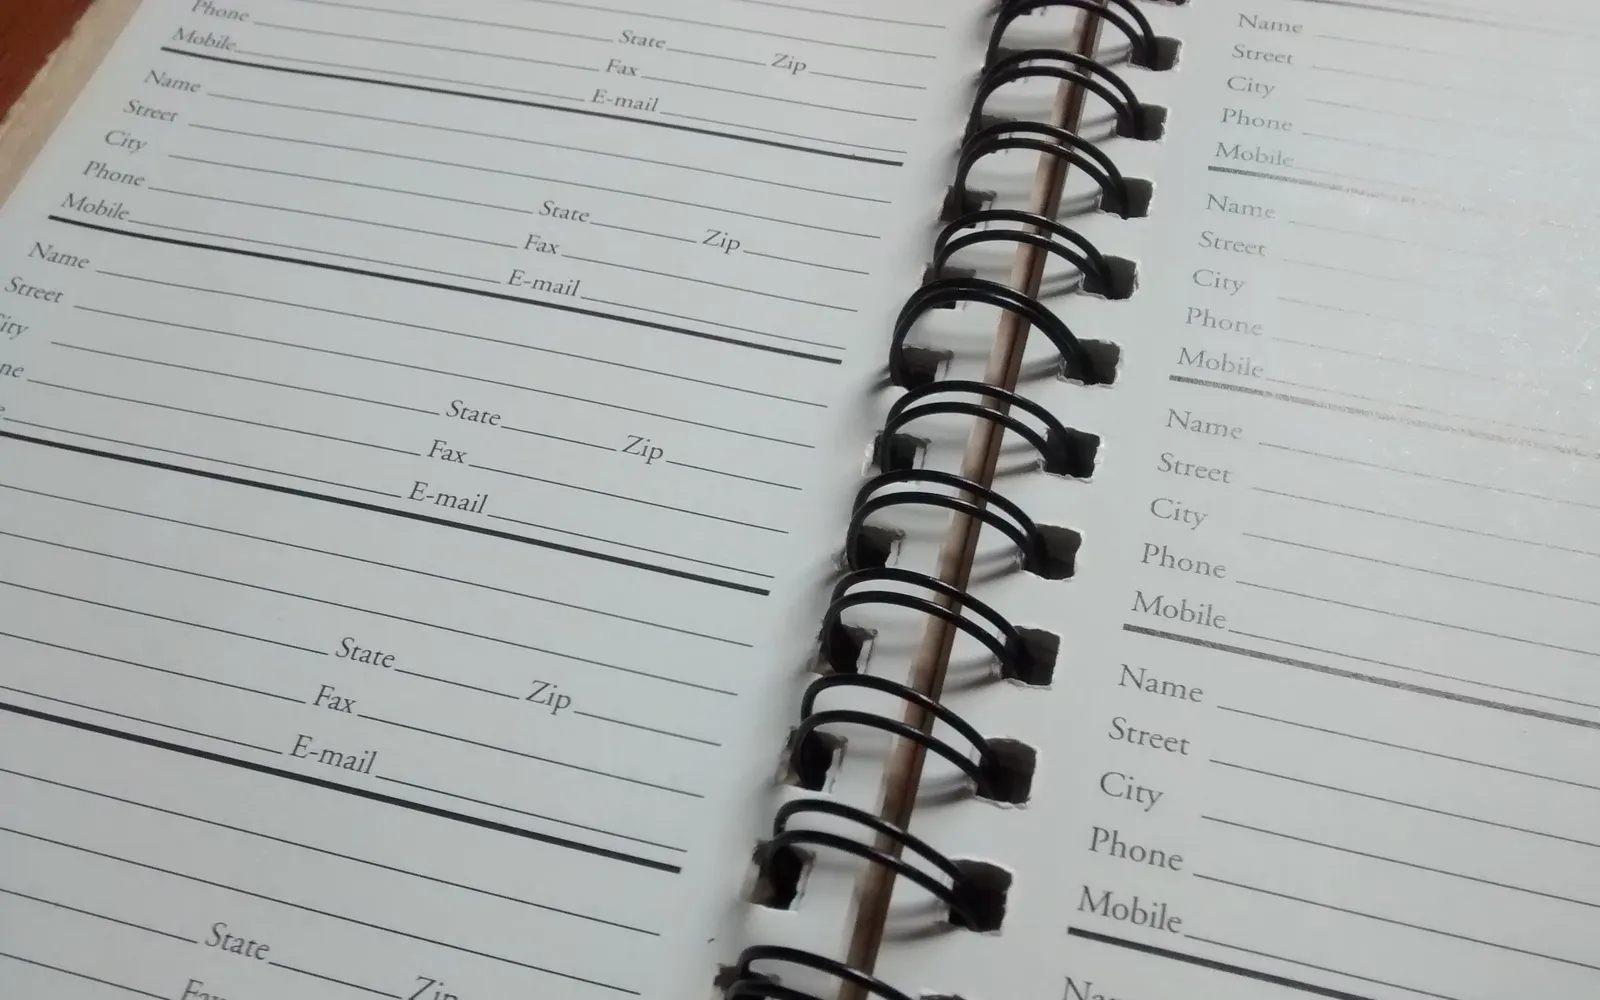 Phone
State Zip
Mobile Fax
E-mail
Name
Street
City
Phone State Zip
Mobile Fax
E-mail
Name
Street
City
State Zip
Fax
E-mail
State Zip
Fax
E-mail
State Zip
Name
Street
City
Phone
Mobile
Name
Street
City
Phone
Mobile
Name
Street
City
Phone
Mobile
Name
Street
City
Phone
Mobile